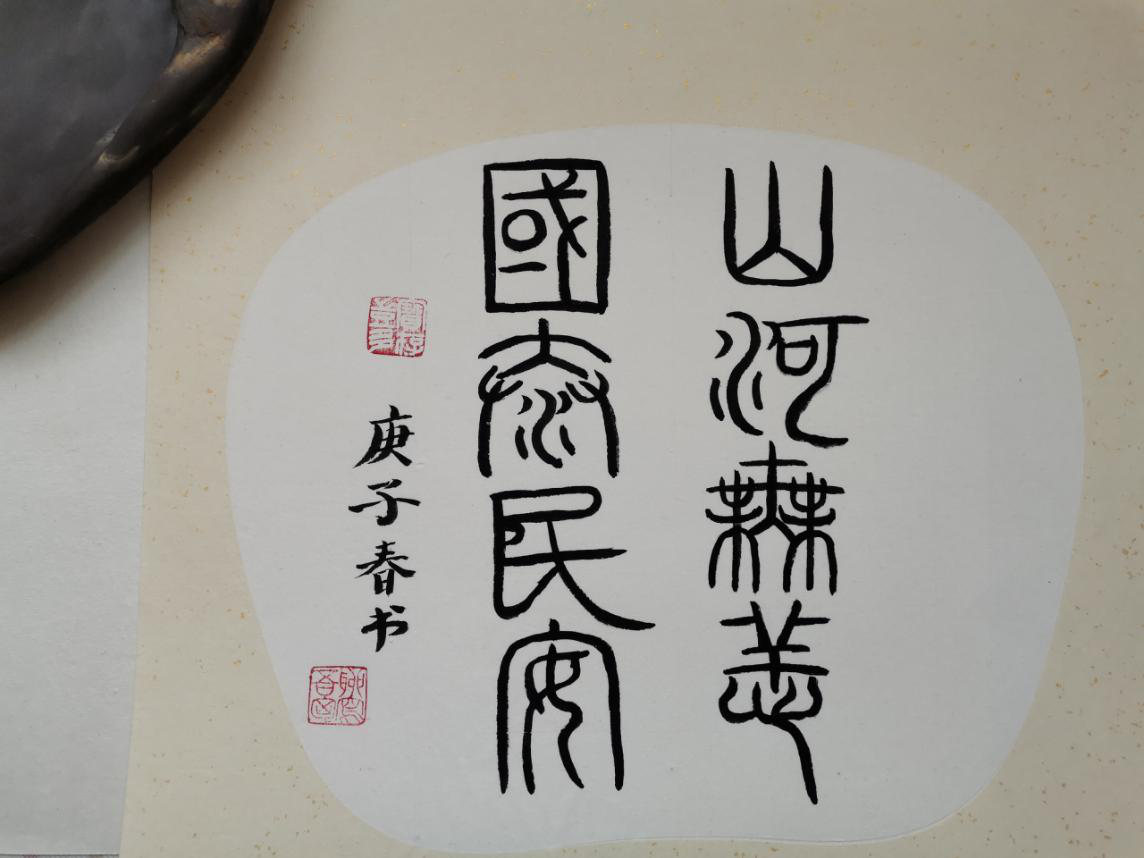 山河無恙
國泰民安
庚子春书